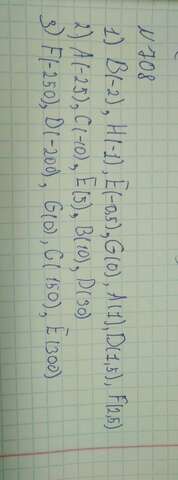 № 708
1) B(-2), H(-1), E(-0,5), G(0), A(1), D(1,5), F(2,5)
2) A(-25), C(-10), E(5), B(10), D(30)
3) F(-250), D(-200), G(0), C(150), E(300)